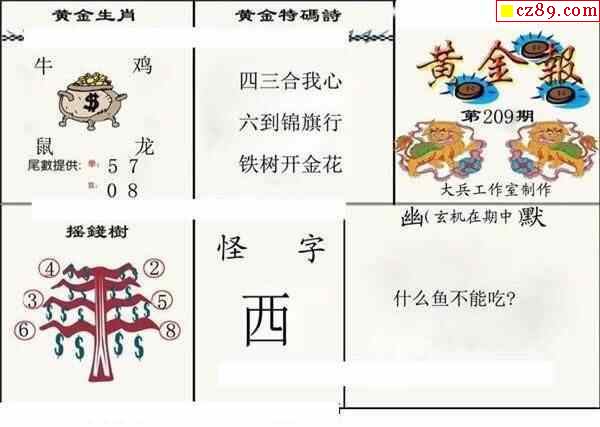 cz89.com
黄金生肖
牛 鸡
$
鼠 龙
尾數提供: 單: 5 7
0 8
黄金特碼詩
四三合我心
六到锦旗行
铁树开金花
黄金報
第209期
大兵工作室制作
摇錢樹
④ ②
③ ⑤
⑥ ⑧
怪 字
西
幽(玄机在期中)默
什么鱼不能吃?